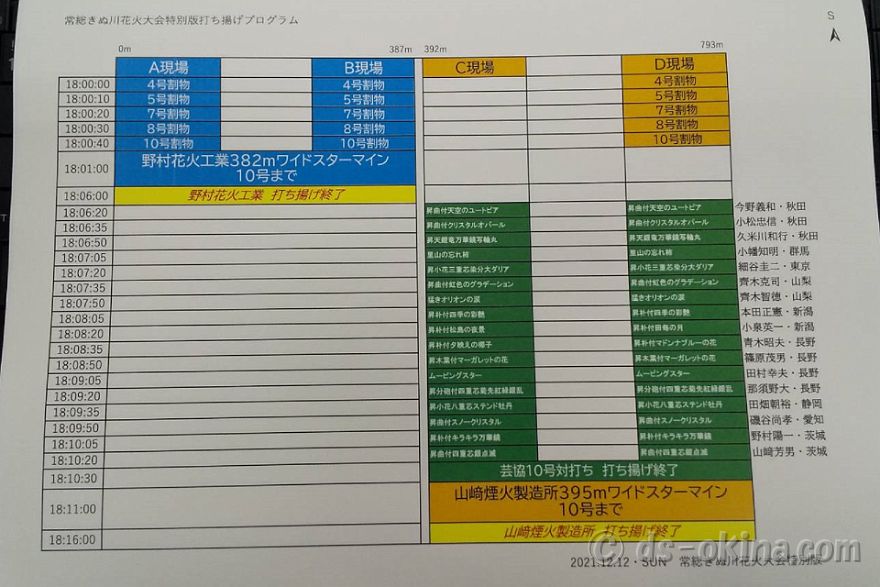 常総きぬ川花火大会特別版打ち揚げプログラム
S
0m 387m 392m 793m
A現場 B現場 C現場 D現場
18:00:00 4号割物 4号割物 4号割物
18:00:10 5号割物 5号割物 5号割物
18:00:20 7号割物 7号割物 7号割物
18:00:30 8号割物 8号割物 8号割物
18:00:40 10号割物 10号割物 10号割物
18:01:00 野村花火工業382mワイドスターマイン
10号まで
18:06:00 野村花火工業 打ち揚げ終了
18:06:20 昇曲付天空のユートピア 昇曲付天空のユートピア 今野義和・秋田
18:06:35 昇曲付クリスタルオパール 昇曲付クリスタルオパール 小松忠信・秋田
18:06:50 昇天銀竜万華鏡写輪丸 昇天銀竜万華鏡写輪丸 久米川和行・秋田
18:07:05 里山の忘れ柿 里山の忘れ柿 小幡知明・群馬
18:07:20 昇小花三重芯染分大ダリア 昇小花三重芯染分大ダリア 細谷圭二・東京
18:07:35 昇曲付虹色のグラデーション 昇曲付虹色のグラデーション 齊木克司・山梨
18:07:50 猛きオリオンの涙 猛きオリオンの涙 齊木智徳・山梨
18:08:05 昇朴付四季の彩艶 昇朴付四季の彩艶 本田正憲・新潟
18:08:20 昇朴付松島の夜景 昇朴付田毎の月 小泉英一・新潟
18:08:35 昇朴付夕映えの椰子 昇朴付マドンナブルーの花 青木昭夫・長野
18:08:50 昇木葉付マーガレットの花 昇木葉付マーガレットの花 篠原茂男・長野
18:09:05 ムービングスター ムービングスター 田村幸夫・長野
18:09:20 昇分砲付四重芯菊先紅緑銀乱 昇分砲付四重芯菊先紅緑銀乱 那須野大・長野
18:09:35 昇小花八重芯ステンド牡丹 昇小花八重芯ステンド牡丹 田畑朝裕・静岡
18:09:50 昇曲付スノークリスタル 昇曲付スノークリスタル 磯谷尚孝・愛知
18:10:05 昇朴付キラキラ万華鏡 昇朴付キラキラ万華鏡 野村陽一・茨城
18:10:20 昇曲付四重芯銀点滅 昇曲付四重芯銀点滅 山﨑芳男・茨城
18:10:30 芸協10号対打ち 打ち揚げ終了
18:11:00 山﨑煙火製造所395mワイドスターマイン
10号まで
18:16:00 山﨑煙火製造所 打ち揚げ終了
2021.12.12・SUN 常総きぬ川花火大会特別版
© ds-okina.com